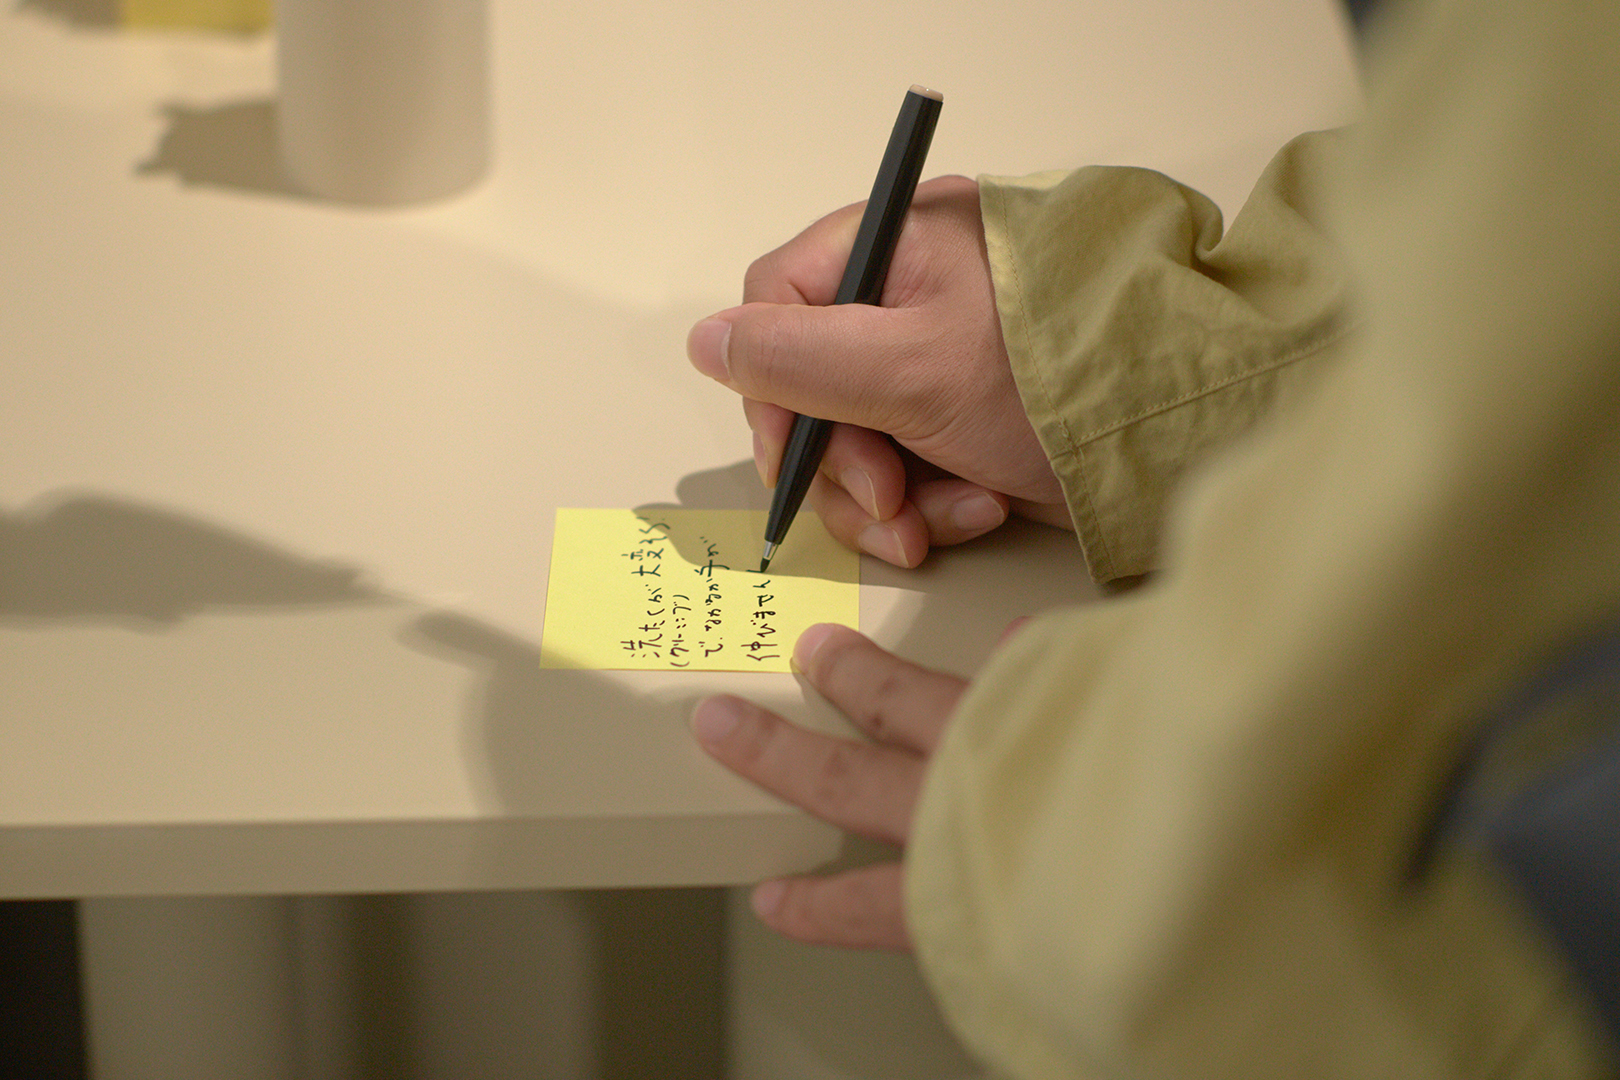 洗たくが大変そう
(クリーニング)
で、なかなか手が
伸びません